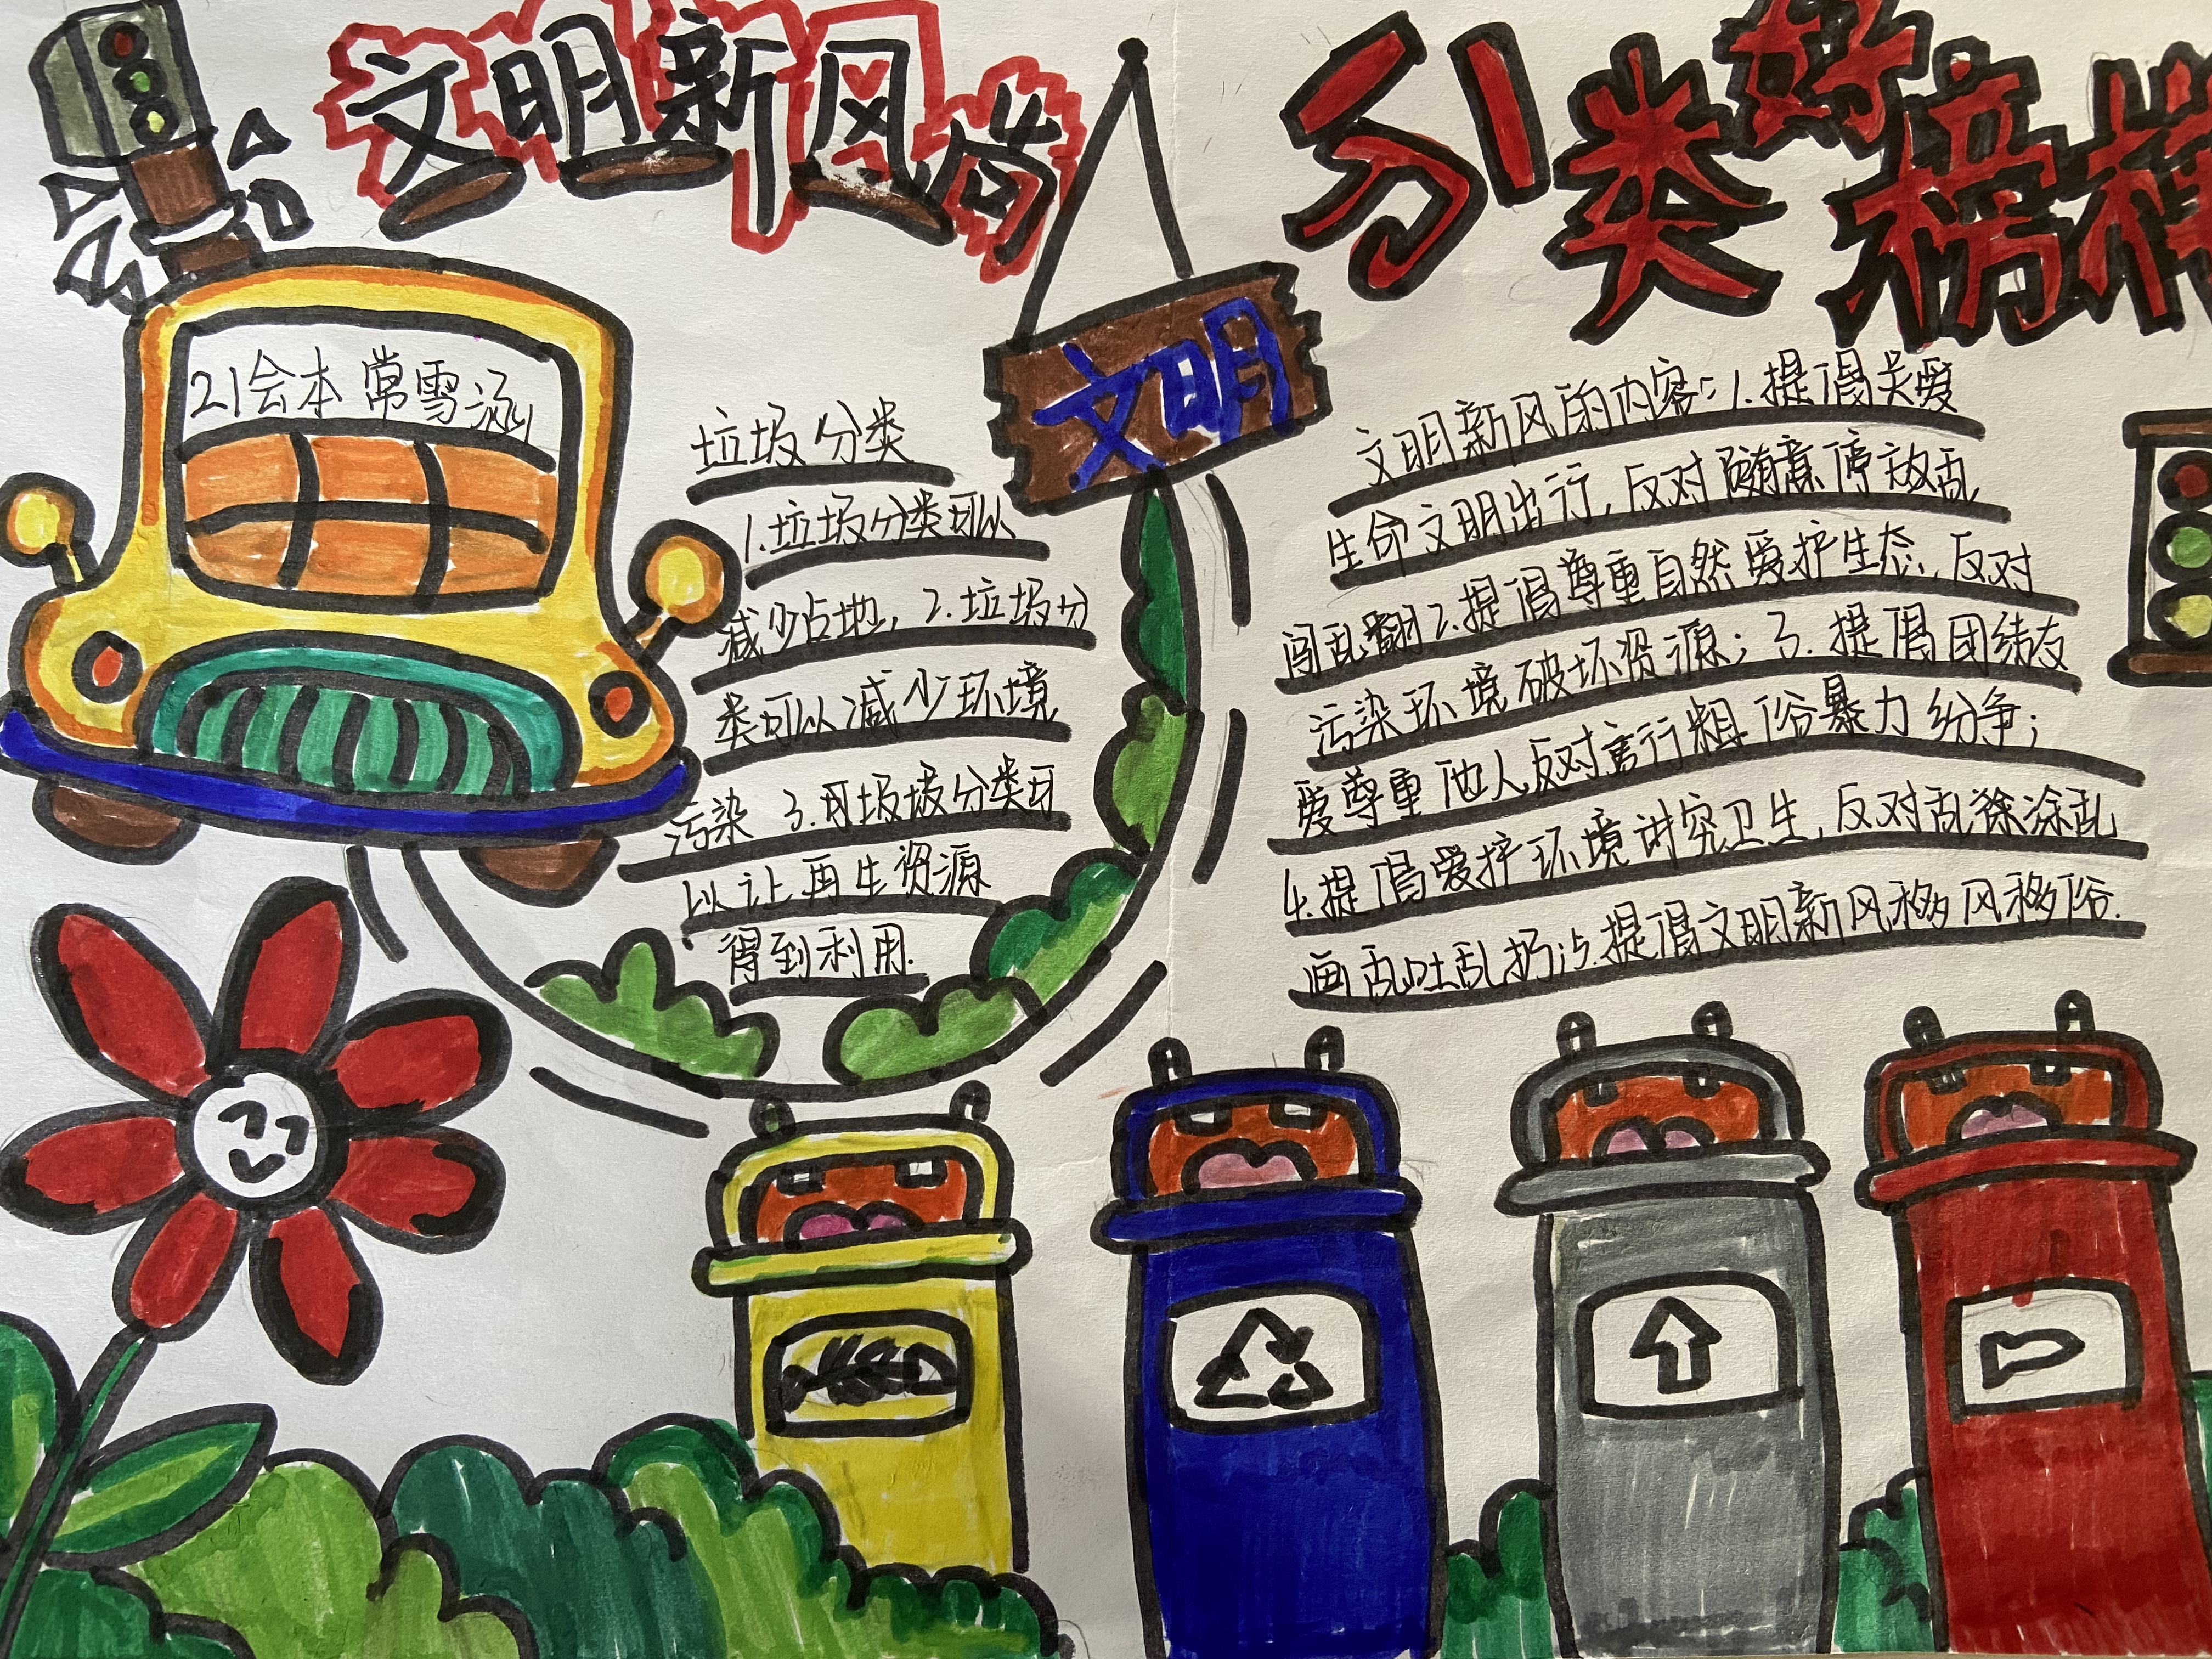 文明新风尚
分类好榜样
文明
21绘本 常雪涵
垃圾分类
1.垃圾分类可以
减少占地，2.垃圾分
类可以减少环境
污染 3.垃圾分类可
以让再生资源
得到利用.
文明新风的内容：1.提倡关爱
生命文明出行，反对随意停放乱
闯乱翻2.提倡尊重自然爱护生态，反对
污染环境破坏资源；3.提倡团结友
爱尊重他人反对言行粗俗暴力纷争；
4.提倡爱护环境讲究卫生，反对乱涂乱
画乱吐乱扔；5.提倡文明新风移风移俗.